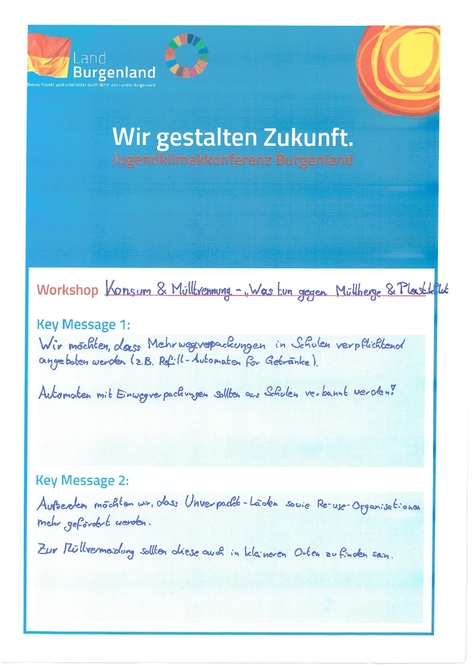 Land
Burgenland
Wir gestalten Zukunft.
Jugendklimakkonferenz Burgenland
Workshop Konsum & Mülltrennung - „Was tun gegen Müllberge & Plastikflut
Key Message 1:
Wir möchten, dass Mehrwegverpackungen in Schulen verpflichtend
angeboten werden (z.B. Refill-Automaten für Getränke).
Automaten mit Einwegverpackungen sollten aus Schulen verbannt werden!
Key Message 2:
Außerdem möchten wir, dass Unverpackt-Läden sowie Re-use-Organisationen
mehr gefördert werden.
Zur Müllvermeidung sollten diese auch in kleineren Orten zu finden sein.